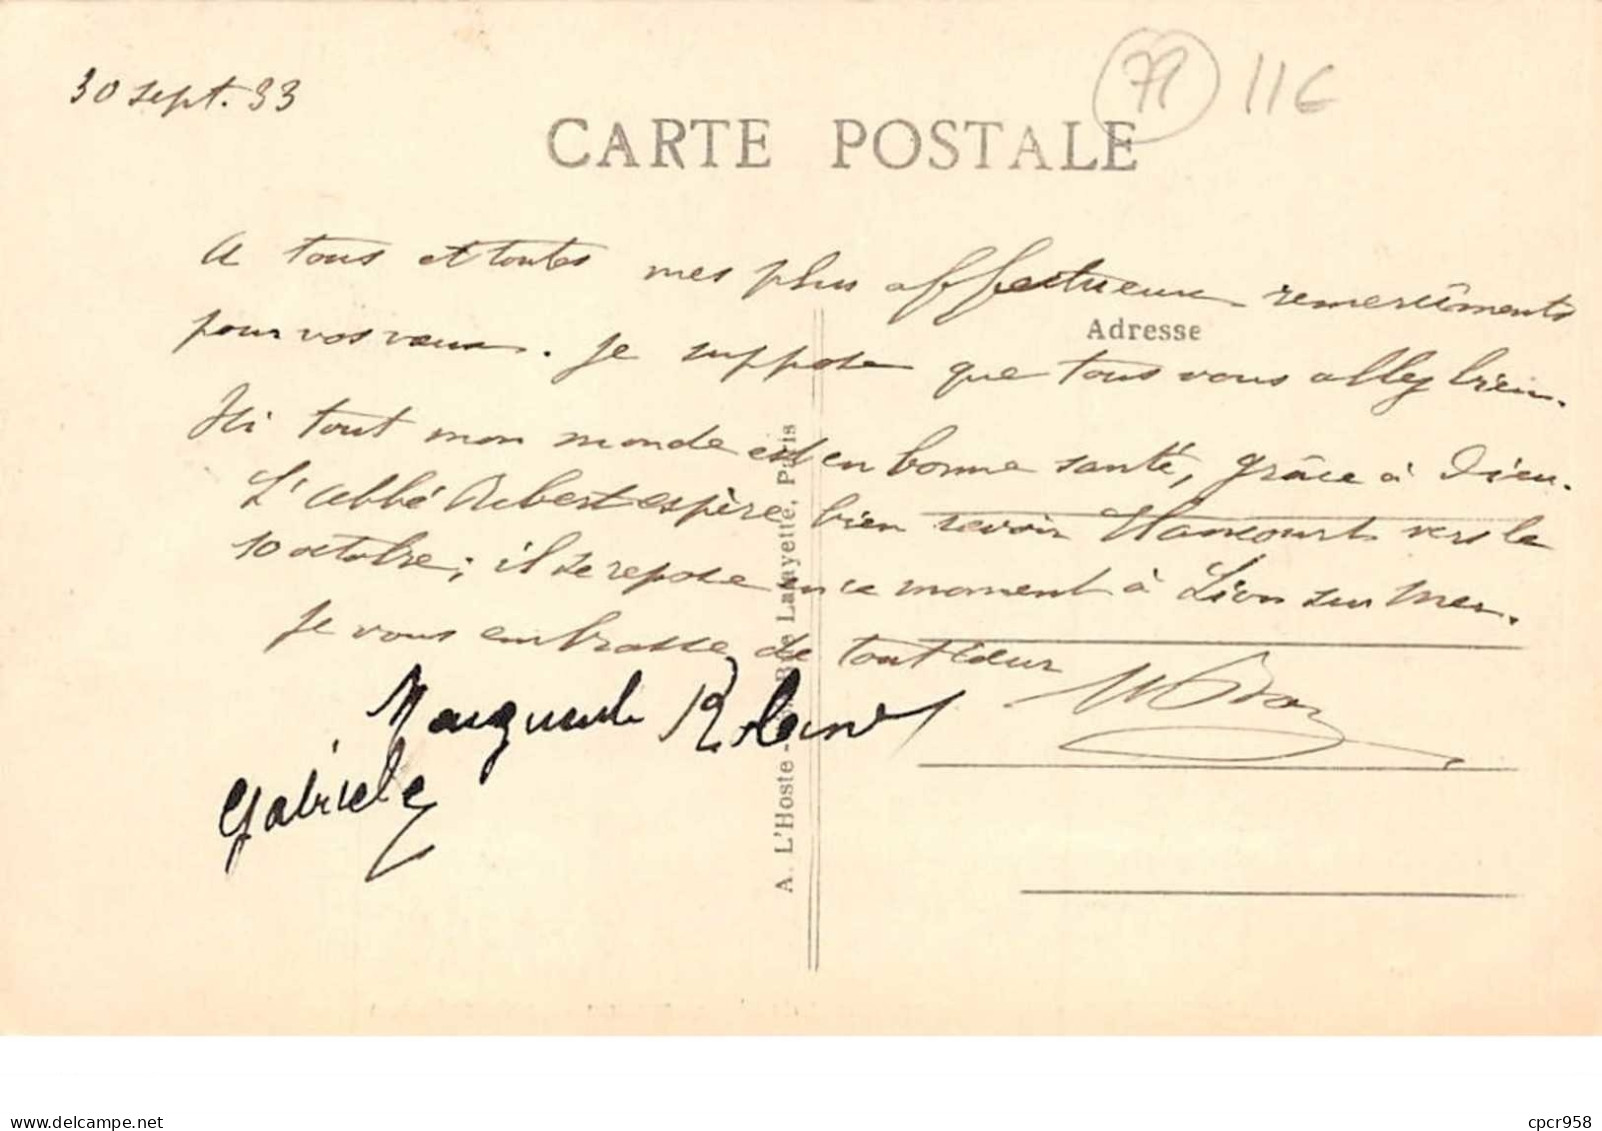 30 sept. 33
79 116
CARTE POSTALE
A tous et toutes mes plus affectueux remercîments
Adresse
pour vos vœux. Je suppose que tous vous allez bien.
Ici tout mon monde est en bonne santé, grâce à Dieu.
L'abbé espère bien revoir vers le
10 octobre; il se repose en ce moment à Lion sur Mer.
Je vous embrasse de tout cœur
Marguerite
Gabriele
A. L'Hoste - Rue Lafayette, Paris
delcampe.net
cpcr958